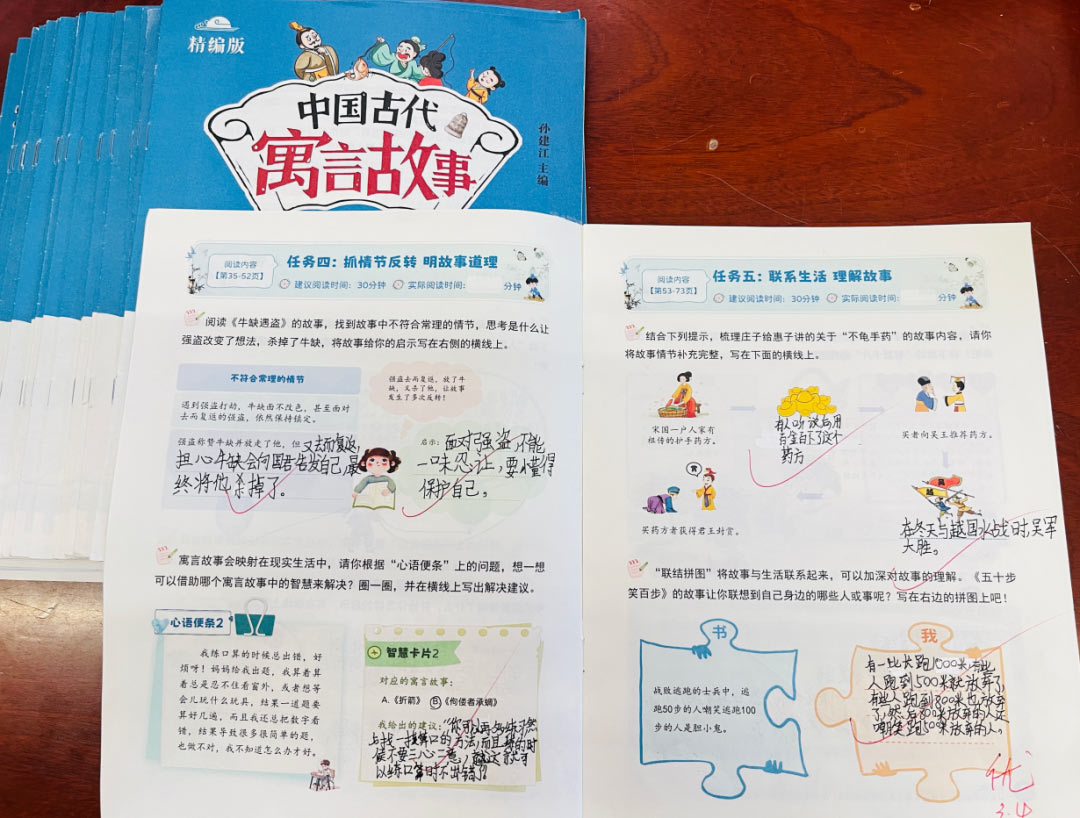 精编版
中国古代
寓言故事
孙建江 主编
阅读内容
【第35-52页】
任务四：抓情节反转 明故事道理
建议阅读时间：30分钟 实际阅读时间： 分钟
阅读《牛缺遇盗》的故事，找到故事中不符合常理的情节，思考是什么让
强盗改变了想法，杀掉了牛缺，将故事给你的启示写在右侧的横线上。
不符合常理的情节
遇到强盗打劫，牛缺面不改色，甚至面对
去而复返的强盗，依然保持镇定。
强盗称赞牛缺并放走了他，但又去而复返，
担心牛缺会向国君告发自己，最
终将他杀掉了。
强盗去而复返，放了牛
缺，又杀了他，让故事
发生了多次反转！
启示：面对强盗不能
一味忍让，要懂得
保护自己。
寓言故事会映射在现实生活中，请你根据“心语便条”上的问题，想一想
可以借助哪个寓言故事中的智慧来解决？圈一圈，并在横线上写出解决建议。
心语便条2
我练口算的时候总出错，好
烦呀！妈妈给我出题，我算着算
着总是忍不住看窗外，或者想等
会儿玩什么玩具，结果一道题要
算好几遍，而且我还总把数字看
错，结果导致很多很简单的题，
也做不对，我不知道怎么办才好。
智慧卡片2
对应的寓言故事：
A.《折箭》 B《佝偻者承蜩》
我给出的建议：“你可以再多练习然
后找一找算口的方法，而且算的时
候不要三心二意，就这
以练口算时不出错了”
阅读内容
【第53-73页】
任务五：联系生活 理解故事
建议阅读时间：30分钟 实际阅读时间： 分钟
结合下列提示，梳理庄子给惠子讲的关于“不龟手药”的故事内容，请你
将故事情节补充完整，写在下面的横线上。
宋国一户人家有
祖传的护手药方。
有人听说后用
百金买下了这个
药方
买者向吴王推荐药方。
赏
买药方者获得君王封赏。
吴
越
在冬天与越国水战时，吴军
大胜。
“联结拼图”将故事与生活联系起来，可以加深对故事的理解。《五十步
笑百步》的故事让你联想到自己身边的哪些人或事呢？写在右边的拼图上吧！
书
战败逃跑的士兵中，逃
跑50步的人嘲笑逃跑100
步的人是胆小鬼。
我
有一次长跑1000米，有些
人跑到500米就放弃了，
有些人跑到800米也放弃
了，然后800米放弃的人还
嘲笑跑500米放弃的人。
优
3.4